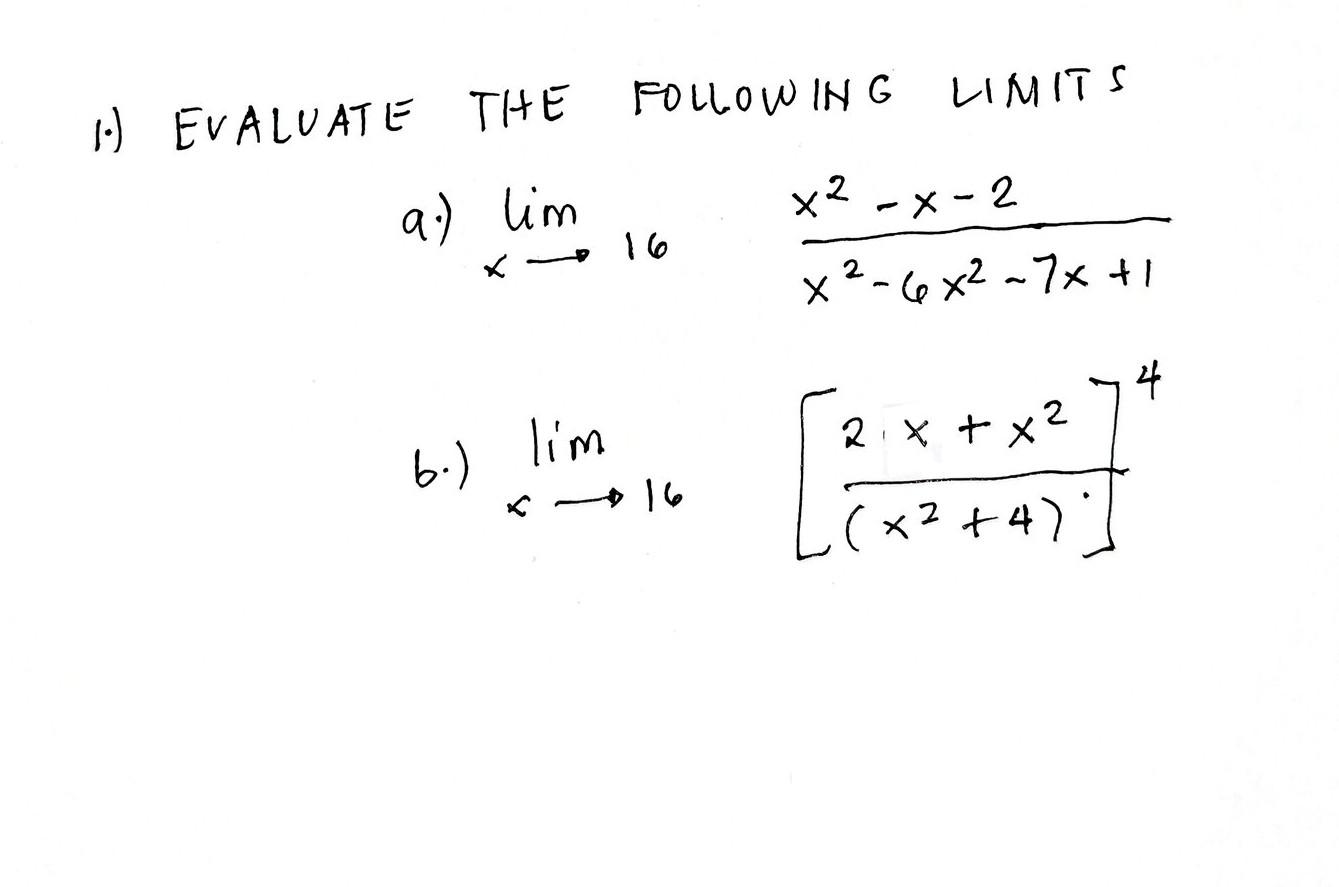 1.) EVALUATE THE FOLLOWING LIMITS
a.) lim x → 16 x² - x - 2 / x² - 6x² - 7x + 1
b.) lim x → 16 [2 x + x² / (x² + 4)]⁴